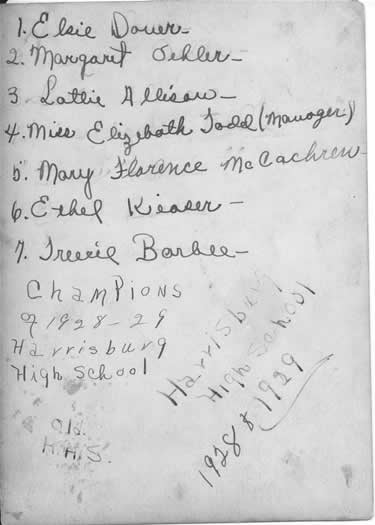 1. Elsie Dover -
2. Margarit Oehler -
3 Lottie Allison -
4. Miss Elizabath Todd (Manager)
5. Mary Florence McCachren -
6. Ethel Kieaser -
7. Barbee -
Champions
of 1928-29
Harrisburg
High School
Old
H.H.S.
Harrisburg
High School
1928 & 1929